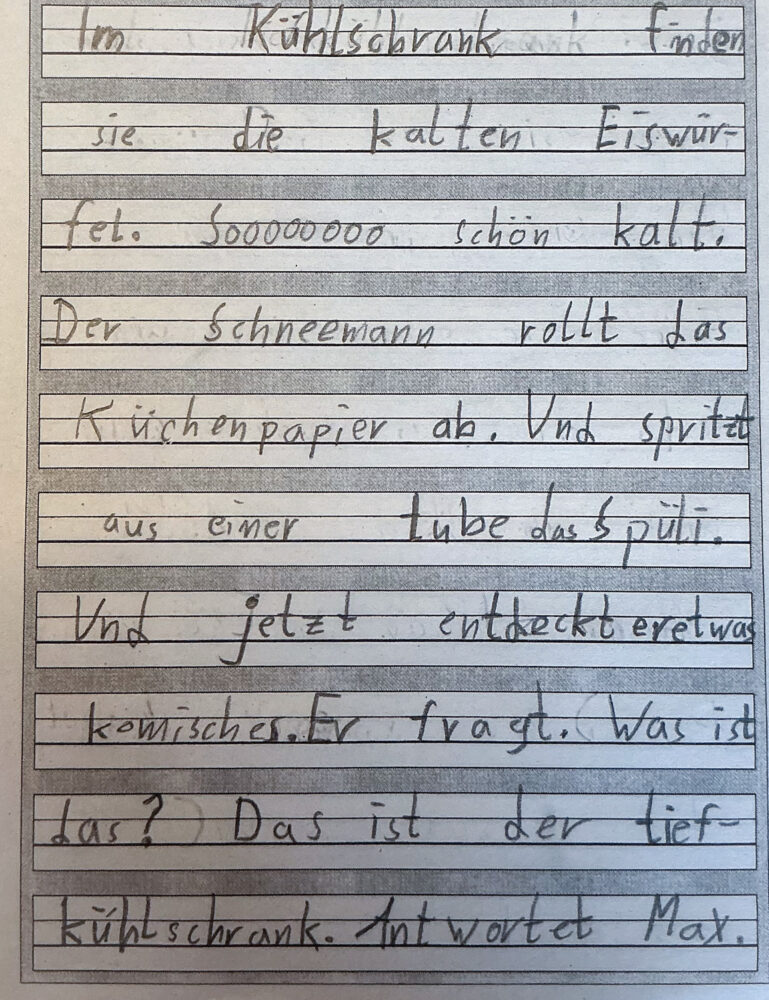 Im Kühlschrank finden
sie die kalten Eiswür-
fel. Sooooooooo schön kalt.
Der Schneemann rollt das
Küchenpapier ab. Und spritzt
aus einer tube das Spüli.
Und jetzt entdeckt er etwas
komisches. Er fragt. Was ist
das? Das ist der tief-
kühlschrank. Antwortet Max.